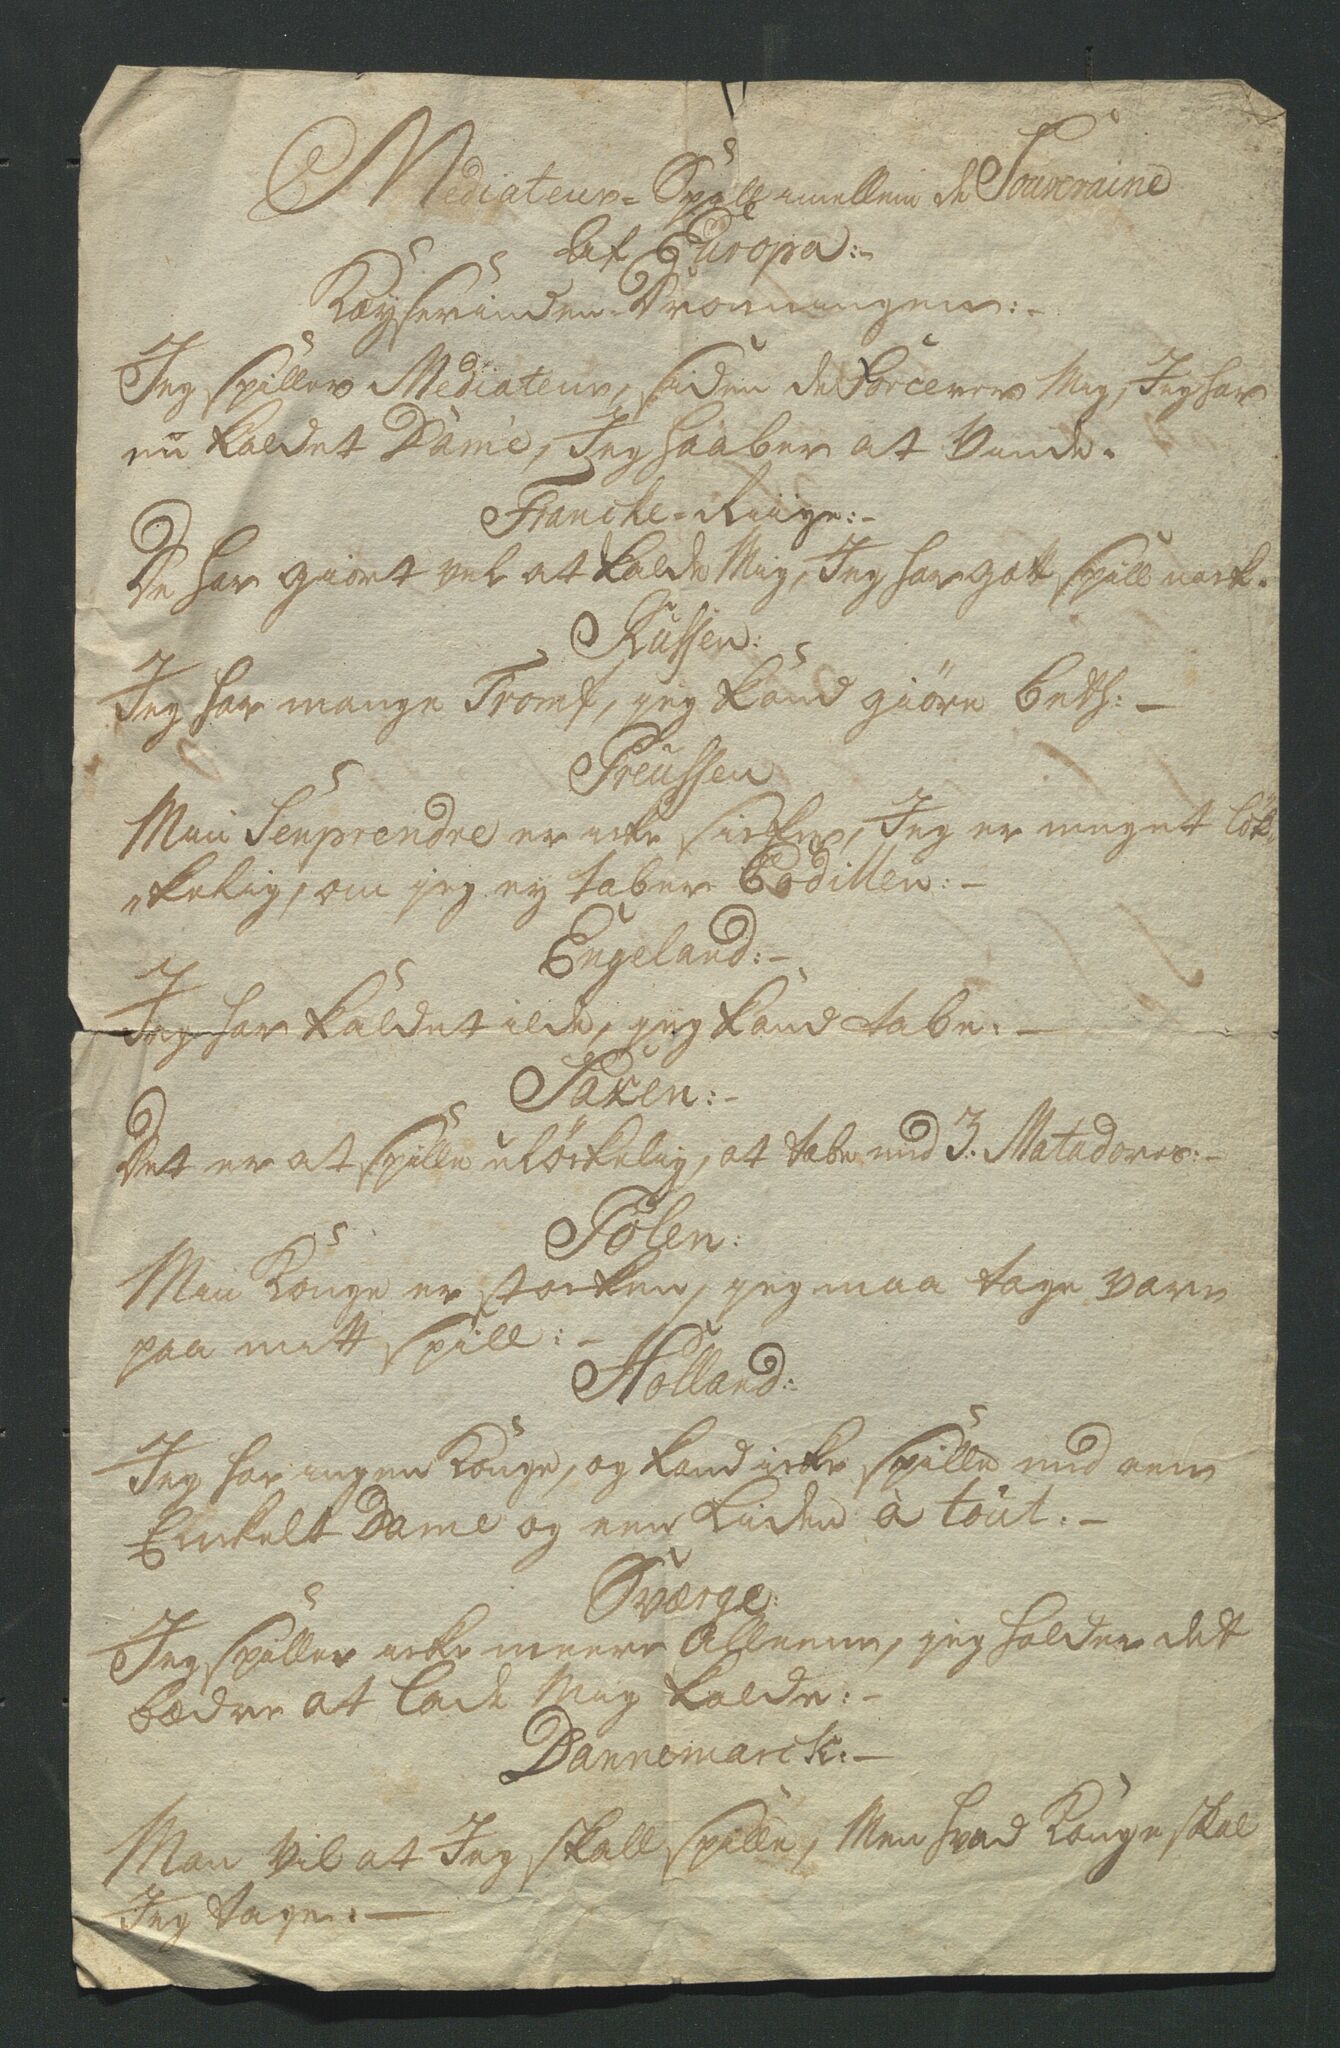 Mediateur-Spill imellem de Souveraine
af Europa:-
Kayserinden-Dronningen:-
Jeg spiller Mediateur, siden de forcerer Mig, Jeg har
nu kaldet Dame, Jeg haaber at Vinde.
Franche-Riige:-
De har giort vel at kalde Mig, Jeg har gott spill nock.
Russen:
Jeg har mange Tromf, jeg kand giöre beth:-
Preussen
Min Senprendre er icke sicker, Jeg er meget lök-
kelig, om jeg ey taber Codillen:-
Engeland:-
Jeg har kaldet ilde, jeg kand tabe:-
Saxen:-
Det er at spille ulöckelig, at tabe med 3. Matadores:-
Polen:
Min Konge er stocken, jeg maa tage vare
paa mitt spill:-
Holland:-
Jeg har ingen Konge, og kand icke spille med een
Enkelt Dame og een liden à tout:-
Sværge:
Jeg spiller icke meere Alleene, jeg holder det
bædre at lade Mig kalde:-
Dannemarck:-
Man vil at Jeg skall spille, Men hvad Konge skal
Jeg tage:-